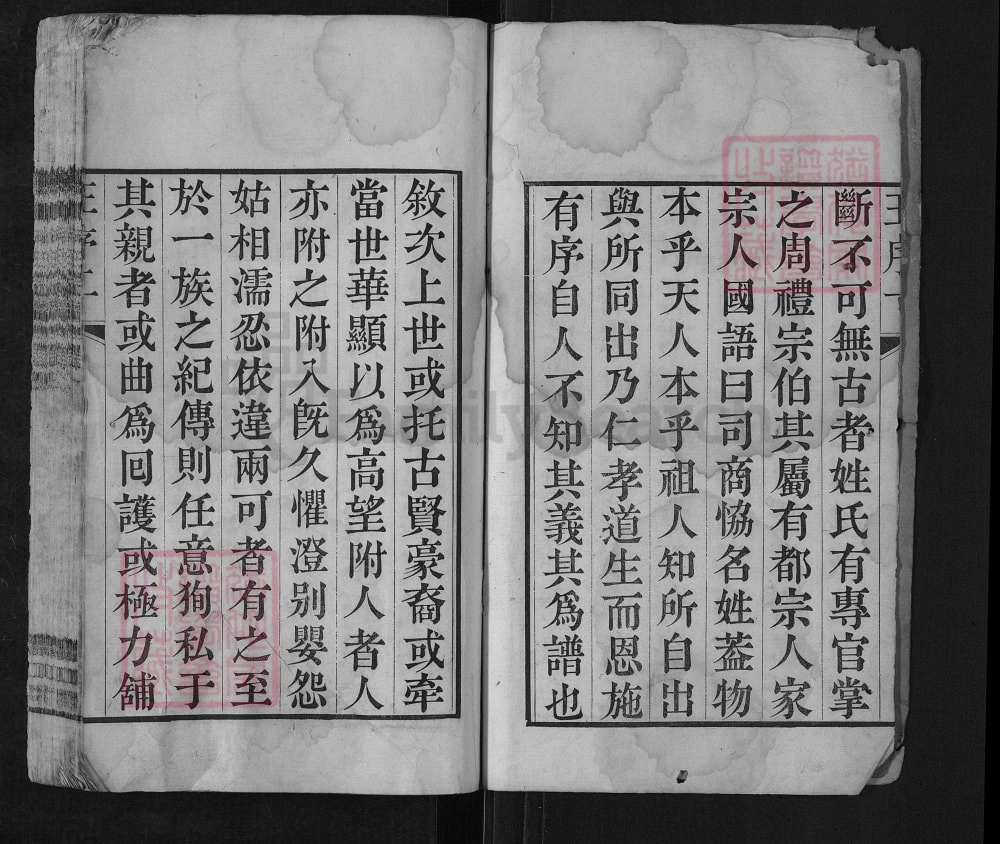 斷不可無古者姓氏有專官掌
之周禮宗伯其屬有都宗人家
宗人國語曰司商恊名姓葢物
本乎天人本乎祖人知所自出
與所同出乃仁孝道生而恩施
有序自人不知其義其爲譜也
敘次上世或托古賢豪裔或牽
當世華顯以爲高望附人者人
亦附之附入旣久懼澄别嬰怨
姑相濡忍依違兩可者有之至
於一族之紀傳則任意狥私于
其親者或曲爲囘護或極力舖